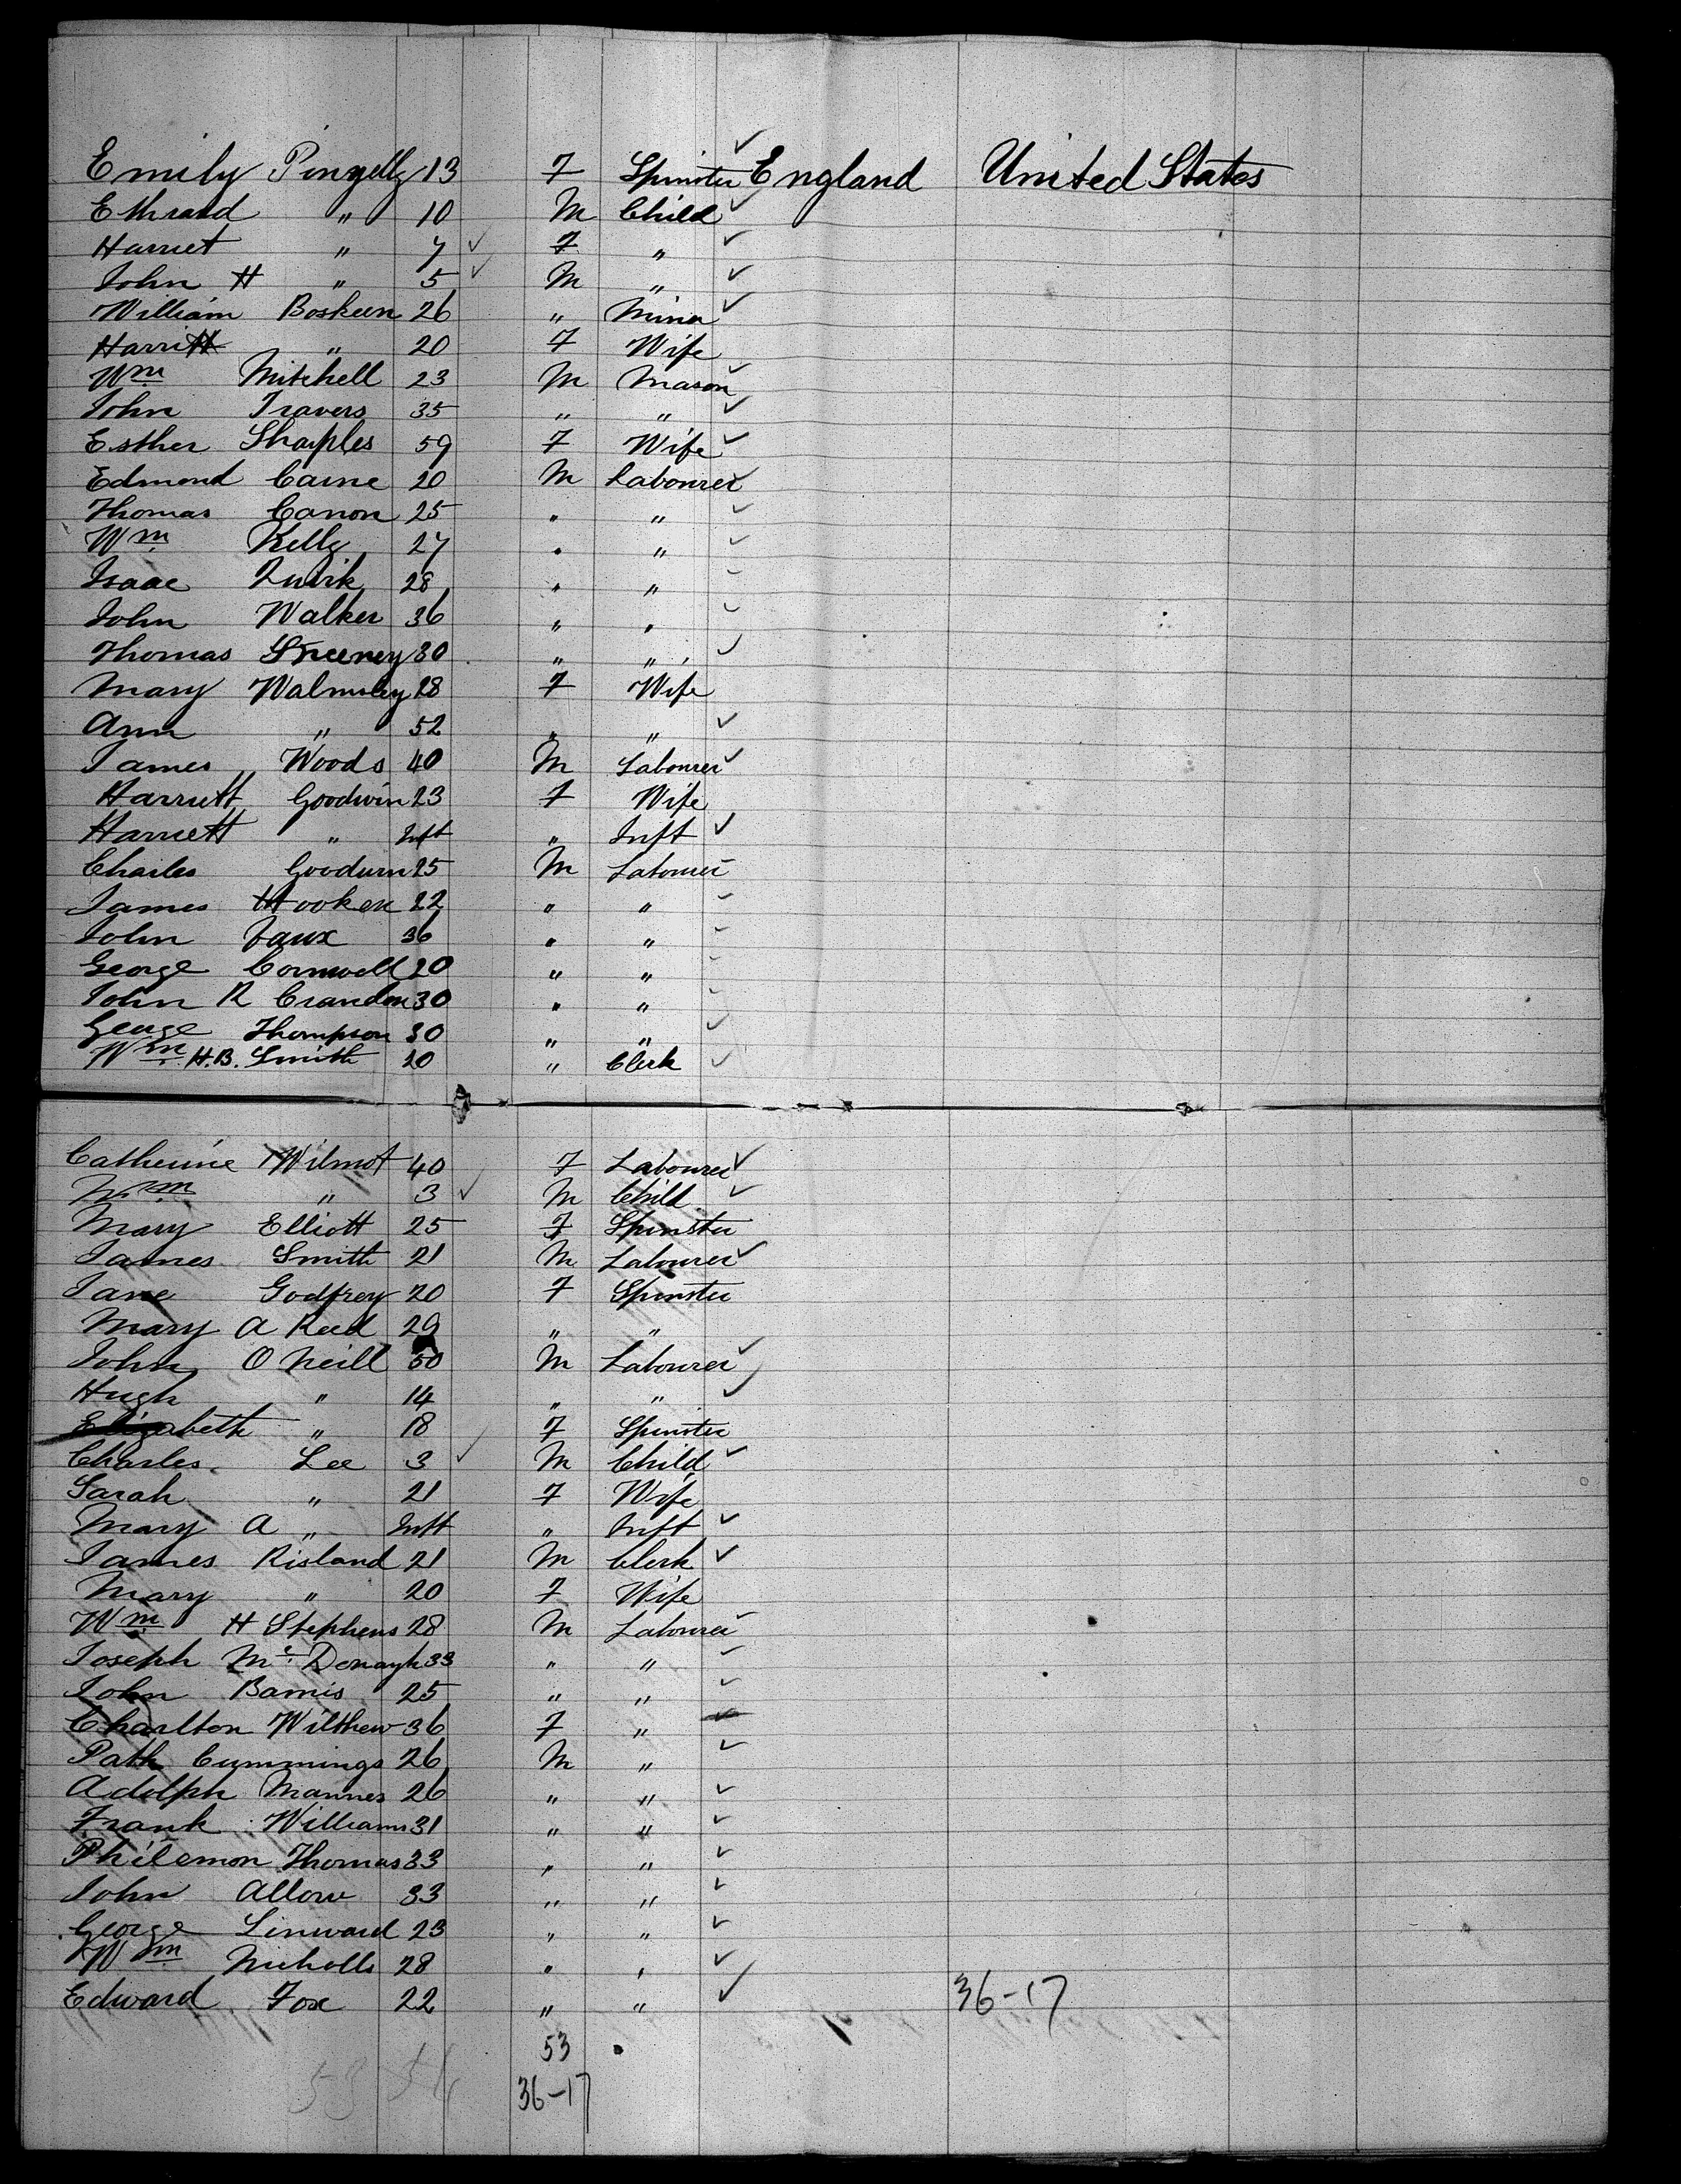 Emily Pingelly 13 F Spinster England United States
Ethraid " 10 M Child
Harriet " 7 F "
John H " 5 M "
William Boskeen 26 " Miner
Harriett " 20 F Wife
Wm Mitchell 23 M Mason
John Travers 35 " "
Esther Sharples 59 F Wife
Edmond Caine 20 M Labourer
Thomas Canon 25 " "
Wm Kelly 27 " "
Isaac Quirk 28 " "
John Walker 36 " "
Thomas Sweeney 30 " "
Mary Walmsley 28 F Wife
Ann " 52 " "
James Woods 40 M Labourer
Harriett Goodwin 23 F Wife
Harriett " Inft " Inft
Charles Goodwin 25 M Labourer
James Hooken 22 " "
John Faux 36 " "
George Cornwell 20 " "
John R Crandon 30 " "
George Thompson 30 " "
Wm H.B. Smith 20 " Clerk
Catherine Wilmot 40 F Labourer
Wm " 3 M Child
Mary Elliott 25 F Spinster
James Smith 21 M Labourer
Jane Godfrey 20 F Spinster
Mary A Reed 29 " "
John O Neill 50 M Labourer
Hugh " 14 " "
Elizabeth " 18 F Spinster
Charles Lee 3 M Child
Sarah " 21 F Wife
Mary A " Inft " Inft
James Risland 21 M Clerk
Mary " 20 F Wife
Wm H Stephens 28 M Labourer
Joseph Mc Donagh 33 " "
John Barnis 25 " "
Charlton Wilthew 36 F "
Patk Cummings 26 M "
Adolph Mannes 26 " "
Frank Williams 31 " "
Philemon Thomas 33 " "
John Allow 33 " "
George Linward 23 " "
Wm Nicholls 28 " "
Edward Fox 22 " " 36-17
53
53 54
36-17